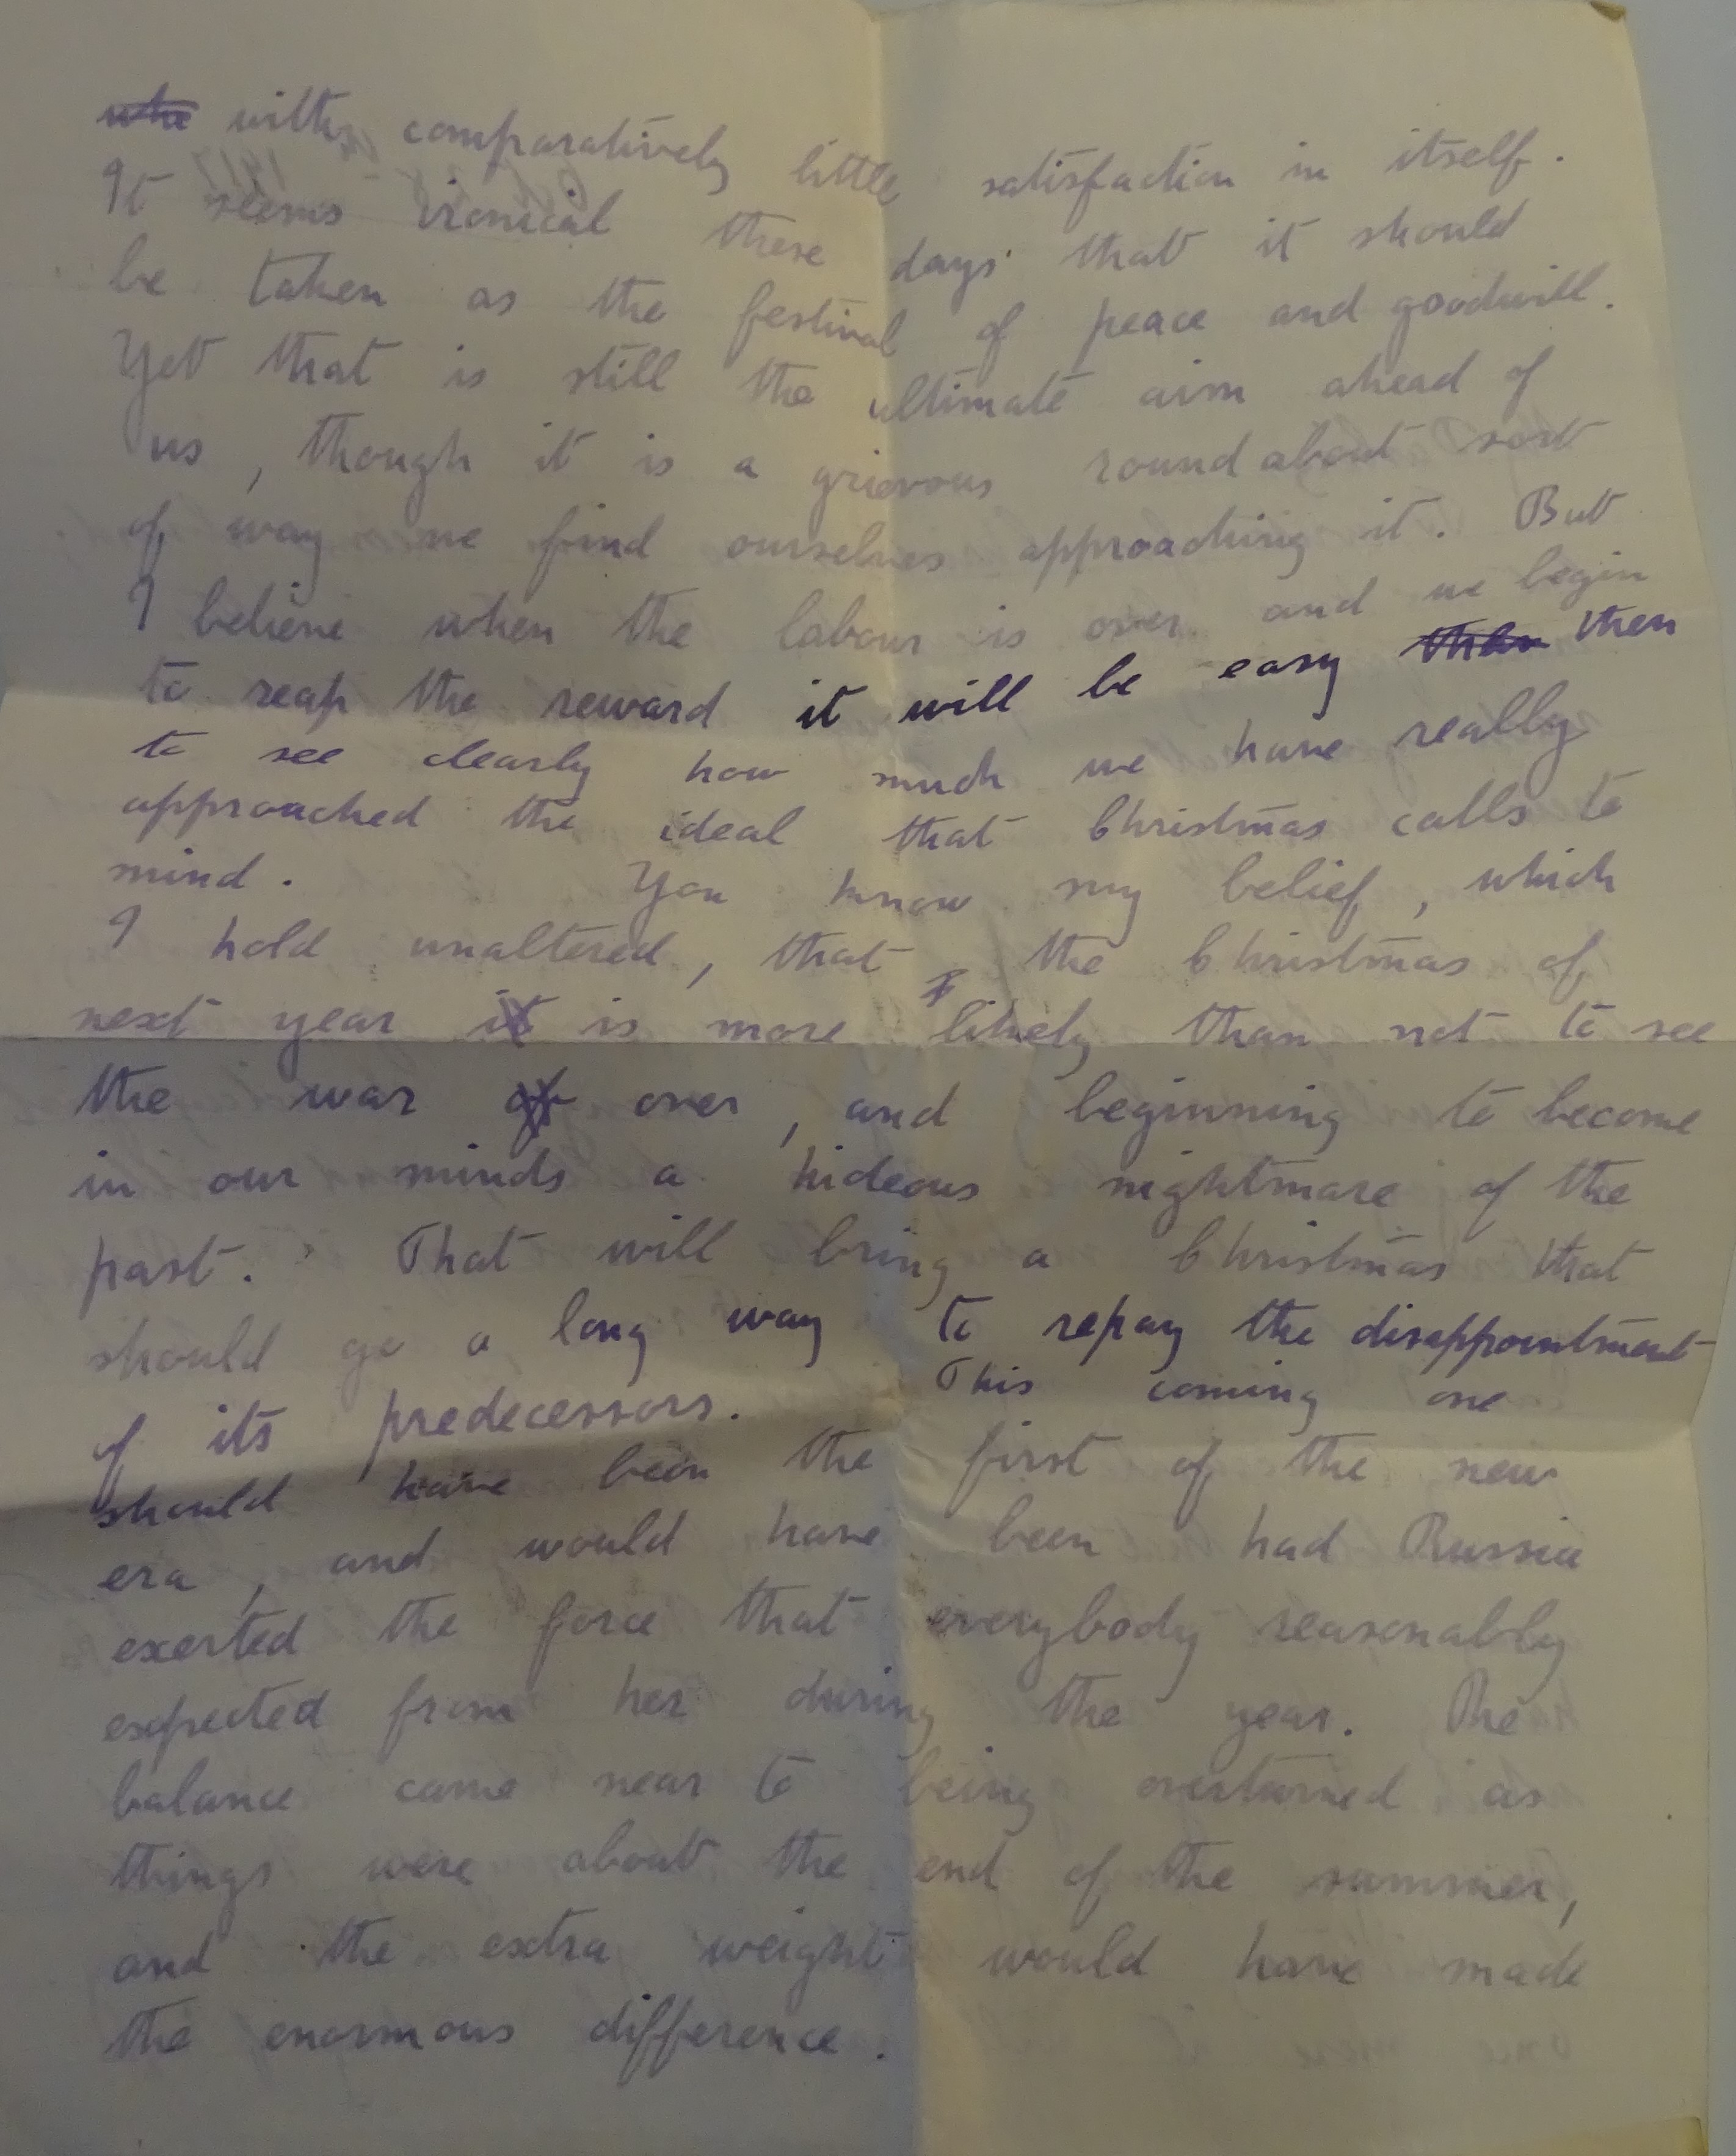 with comparatively little satisfaction in itself.
It seems ironical these days that it should
be taken as the festival of peace and goodwill.
Yet that is still the ultimate aim ahead of
us, though it is a grievous roundabout sort
of way we find ourselves approaching it. But
I believe when the labour is over and we begin
to reap the reward it will be easy then then
to see clearly how much we have really
approached the ideal that Christmas calls to
mind. You know my belief, which
I hold unaltered, that the Christmas of
next year it is more likely than not to see
the war of over, and beginning to become
in our minds a hideous nightmare of the
past. That will bring a Christmas that
should go a long way to repay the disappointment
of its predecessors. This coming one
should have been the first of the new
era, and would have been had Russia
exerted the force that everybody reasonably
expected from her during the year. The
balance came near to being overturned as
things were about the end of the summer,
and the extra weight would have made
the enormous difference.